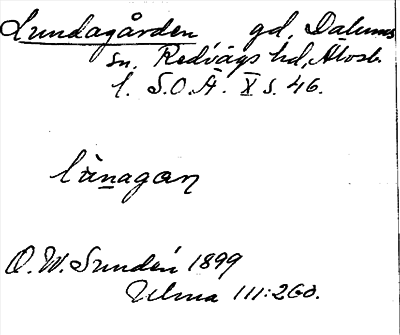 Lundagården gd, Dalums
sn. Redvägs hd, Älvsb.
l. S.O.Ä. X s. 46.
lùnagan
O.W. Sundén 1899
Ulma 111:260.